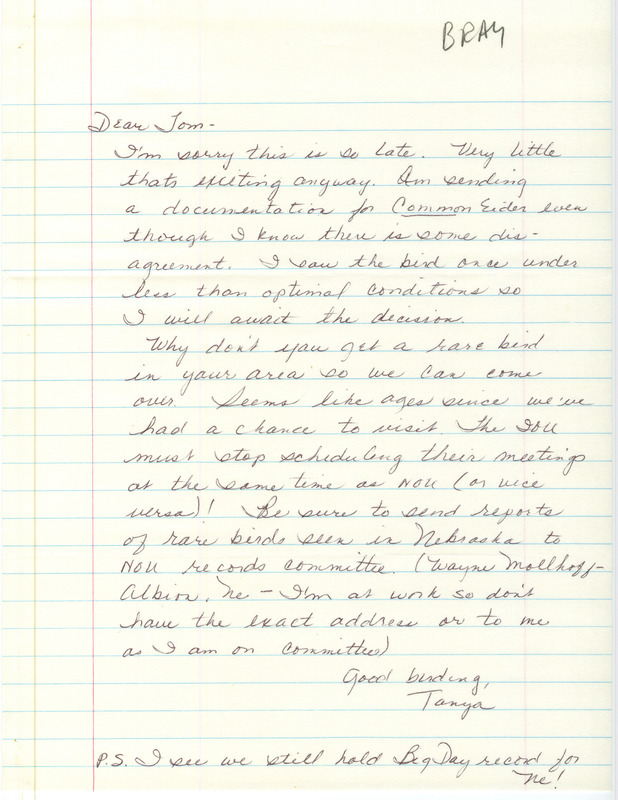 BRAY
Dear Tom-
I'm sorry this is so late. Very little
thats exciting anyway. Am sending
a documentation for Common Eider even
though I know there is some dis-
agreement. I saw the bird once under
less than optimal conditions so
I will await the decision.
Why don't you get a rare bird
in your area so we can come
over. Seems like ages since we've
had a chance to visit. The IOU
must stop scheduling their meetings
at the same time as NOU (or vice
versa)! Be sure to send reports
of rare birds seen in Nebraska to
NOU records committee. (Wayne Mollhoff-
Albion, Ne - I'm at work so don't
have the exact address or to me
as I am on committee)
Good birding,
Tanya
P.S. I see we still hold Big Day record for
Ne!